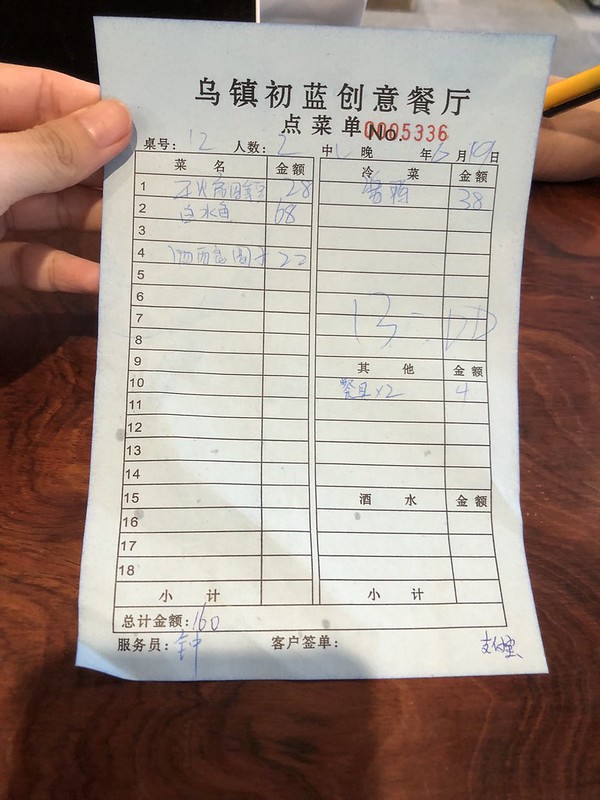 乌镇初蓝创意餐厅
点菜单 No. 0005336
桌号: 12 人数: 2 中 晚 年 6 月 19 日
菜 名 金额 冷 菜 金额
1 28 酱鸭 38
2 白水鱼 68
3
4 22
5
6
7 13:00
8
9 其 他 金额
10 餐具×2 4
11
12
13
14
15 酒 水 金额
16
17
18
小 计 小 计
总计金额: 160
服务员: 钟 客户签单: 支付宝